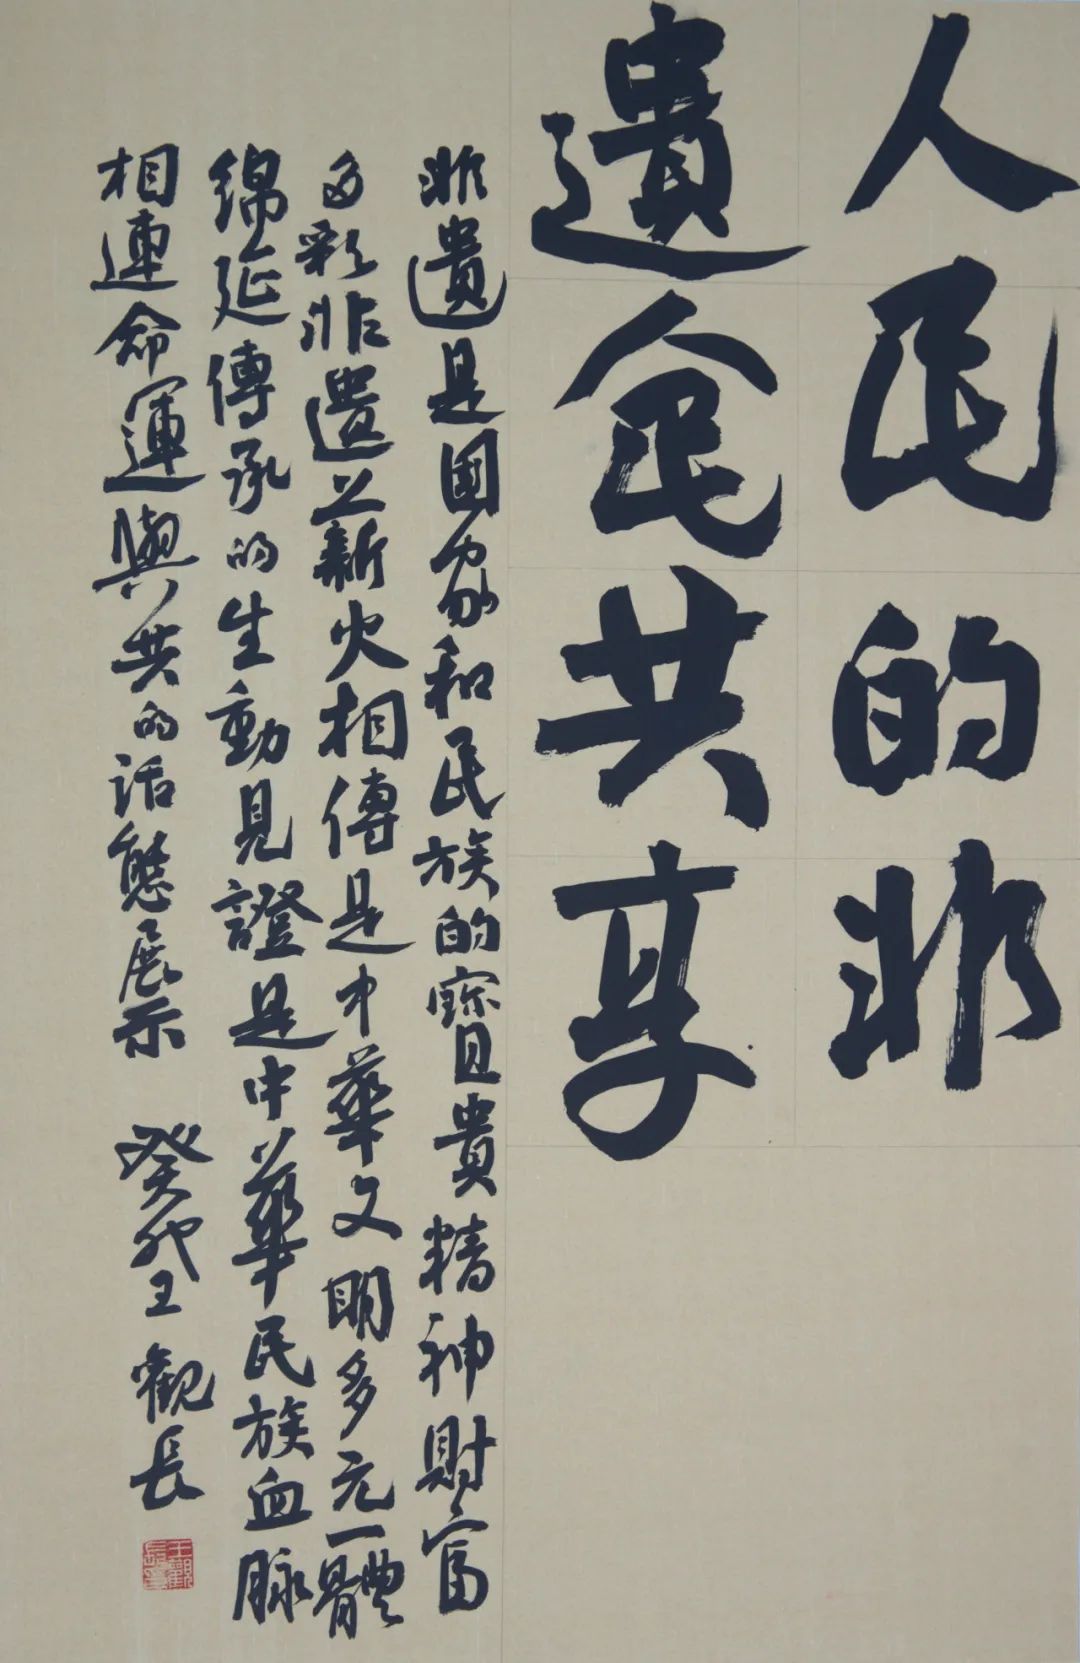 人民的非
遺人民共享
非遺是国家和民族的寳貴精神財富
多彩非遺薪火相傳是中華文明多元一體
綿延傳承的生動見證是中華民族血脉
相連命運與共的活態展示 癸卯王觀長